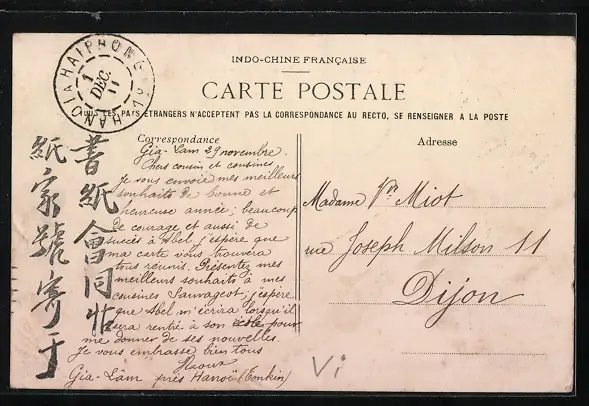 INDO-CHINE FRANÇAISE
CARTE POSTALE
TOUS LES PAYS ÉTRANGERS N'ACCEPTENT PAS LA CORRESPONDANCE AU RECTO, SE RENSEIGNER A LA POSTE
HANOI A HAIPHONG
1
DEC.
11
Correspondance
Gia-Lâm 29 novembre.
Chers cousin et cousines,
je vous envoie mes meilleurs
souhaits de bonne et
heureuse année; beaucoup
de courage et aussi de
succès à Abel j'espère que
ma carte vous trouvera
tous réunis. Présentez mes
meilleurs souhaits à mes
cousines Sauvageot; j'espère
que Abel m'écrira lorsqu'il
sera rentré à son école pour
me donner de ses nouvelles.
Je vous embrasse bien tous
Raoul
Gia-Lâm près Hanoï (Tonkin)
Adresse
Madame Vve Miot
rue Joseph Milson 11
Dijon
Vi
書紙會同
紙家號寄于